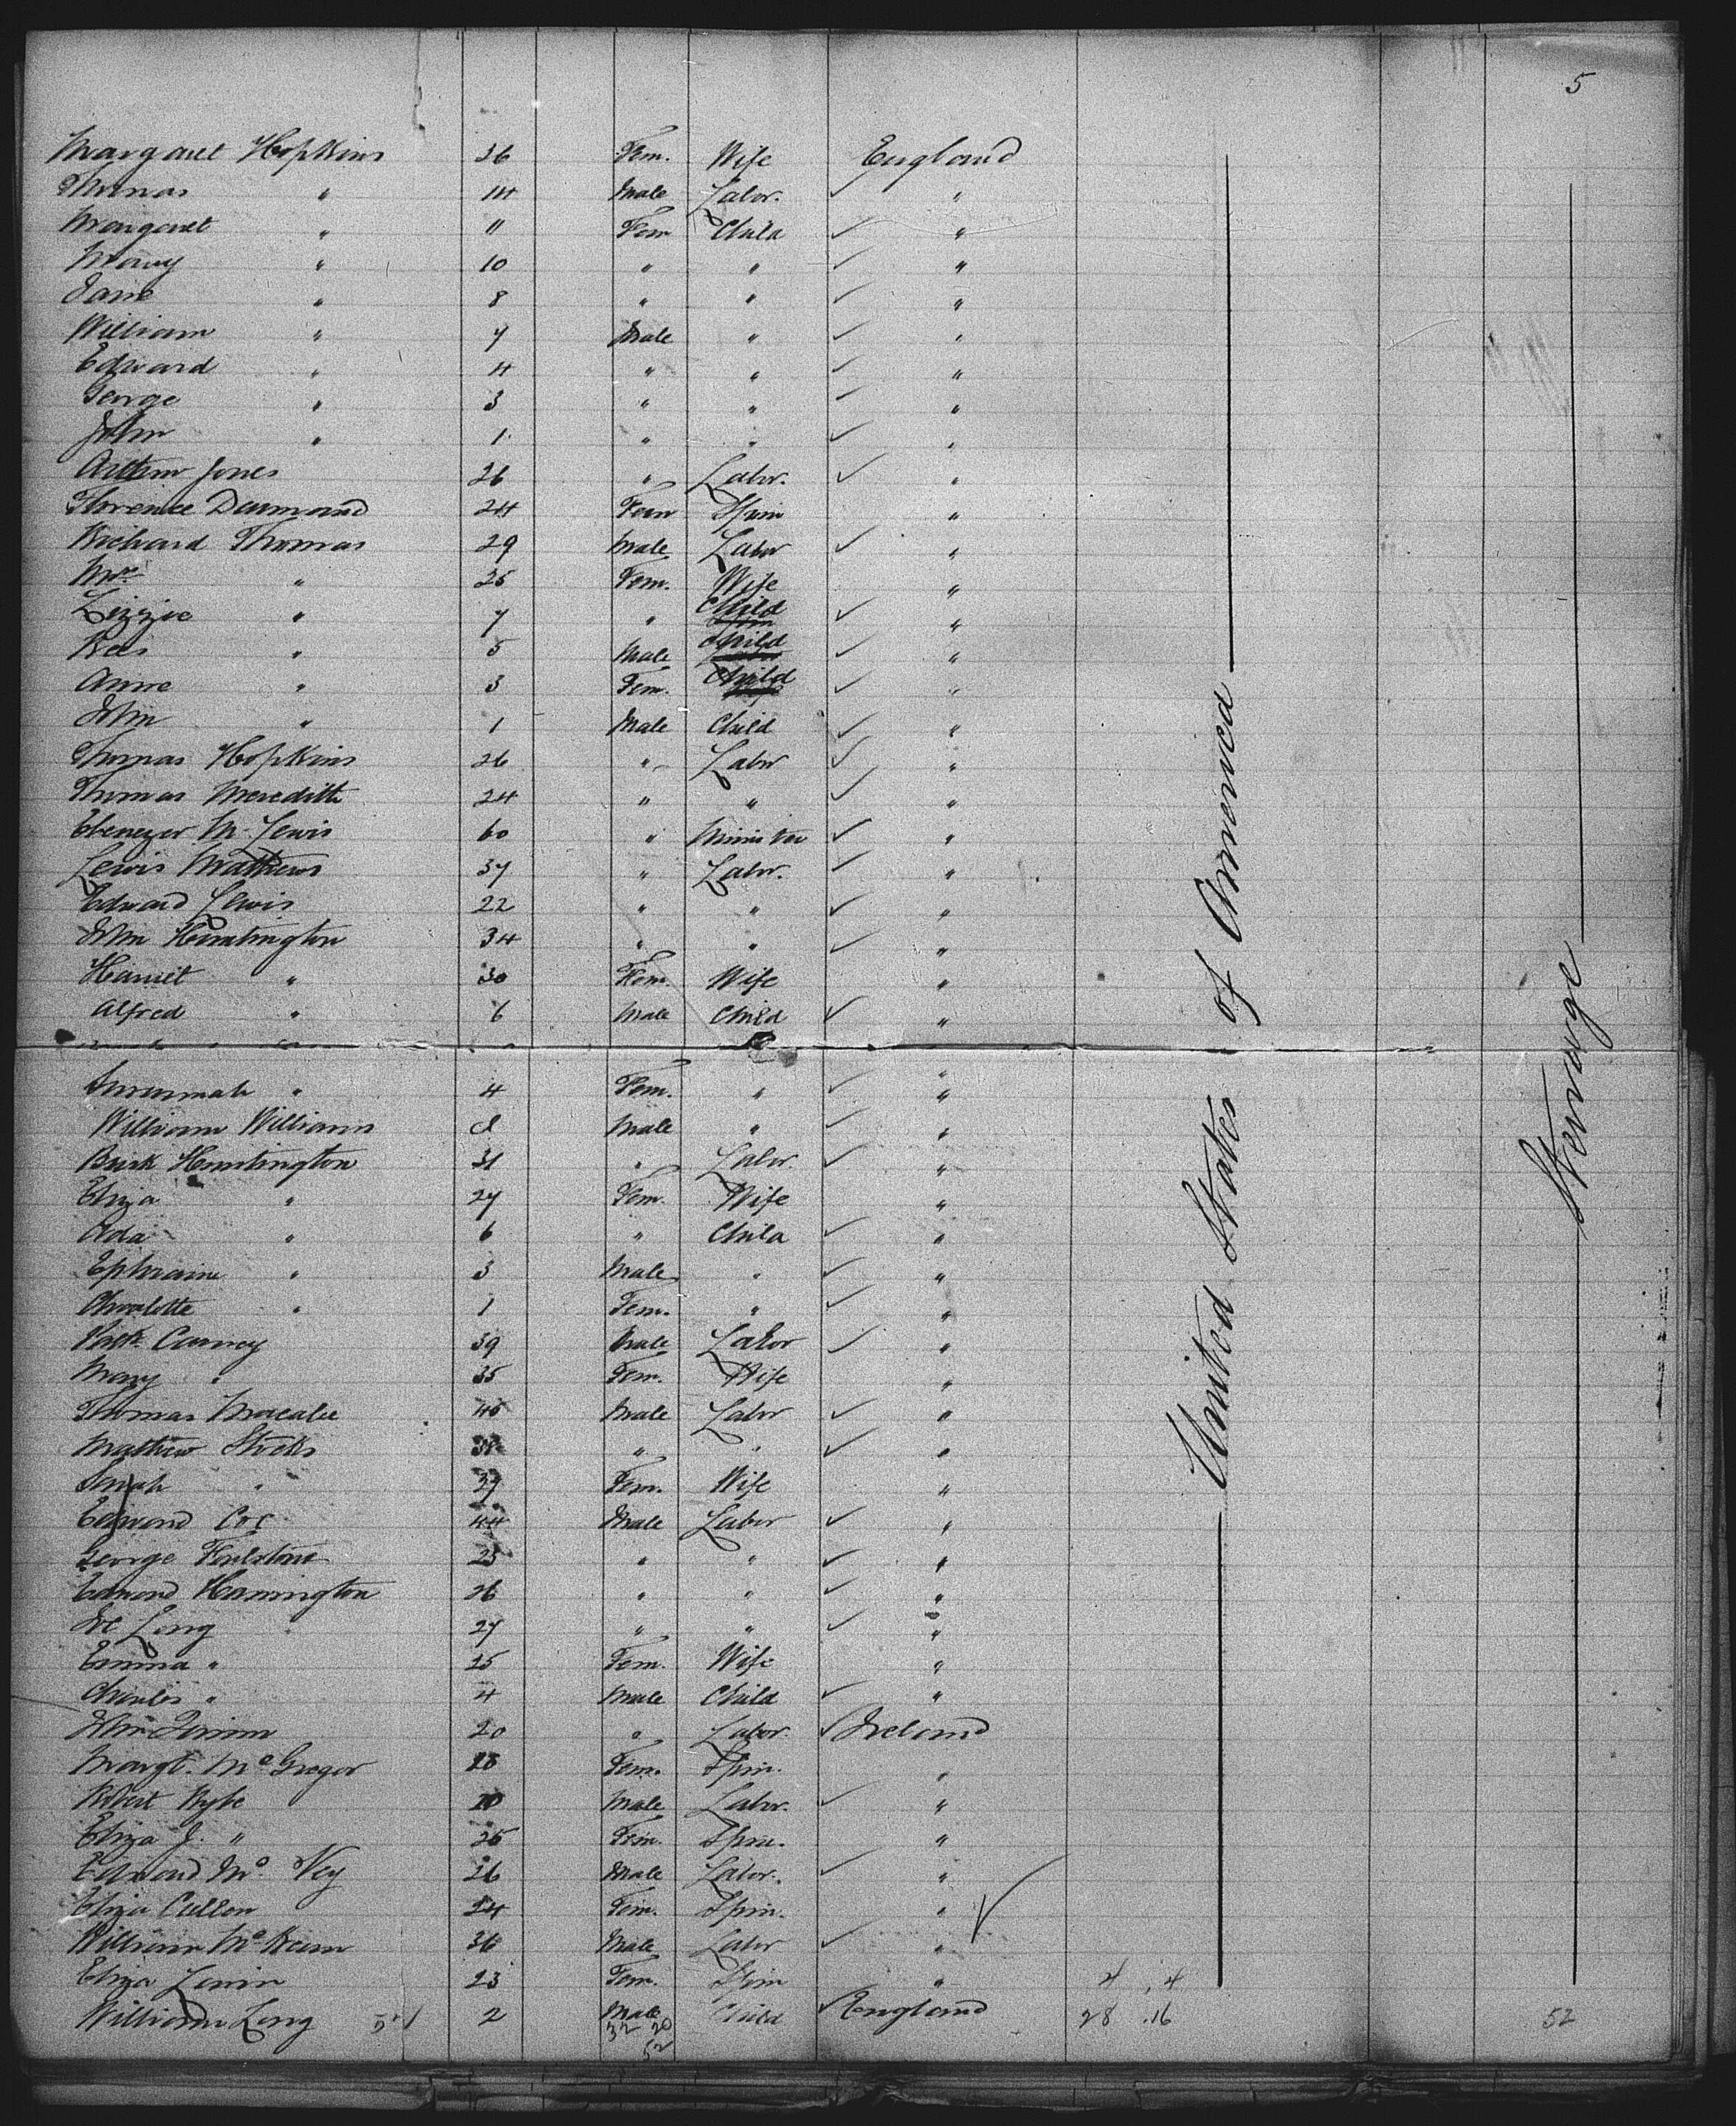 5
Margaret Hopkins 36 Fem. Wife England
Thomas " 14 Male Labor. ✓ "
Margaret " 11 Fem Child ✓ "
Mary " 10 " " ✓ "
Jane " 8 " " ✓ "
William " 7 Male " ✓ "
Edward " 4 " " ✓ "
George " 3 " " ✓ "
John " 1 " " ✓ "
Arthur Jones 26 " Labor. ✓ "
Florence Desmond 24 Fem Spin "
Richard Thomas 29 Male Labor ✓ "
Mrs " 25 Fem. Wife "
Lizzie " 7 " Child ✓ "
Rees " 5 Male Child ✓ "
Anne " 3 Fem. Child ✓ "
John " 1 Male Child ✓ "
Thomas Hopkins 26 " Labor ✓ "
Thomas Meredith 24 " " ✓ "
Ebenezer M. Lewis 60 " Minister ✓ "
Lewis Mathews 37 " Labor. ✓ "
Edward Lewis 22 " " ✓ "
John Huntington 34 " " ✓ "
Harriet " 30 Fem. Wife "
Alfred " 6 Male Child ✓ "
Susannah " 4 Fem. " ✓ "
William Williams Male " ✓ "
Huntington 31 " Labor. ✓ "
Eliza " 27 Fem. Wife "
Ada " 6 " Child ✓ "
Ephraim " 3 Male " ✓ "
Charlotte " 1 Fem. " ✓ "
Patk. Carney 39 Male Labor ✓ "
Mary " 35 Fem. Wife "
Thomas Male Labor ✓ "
Mathew Stocks 38 " " ✓ "
Sarah " 37 Fem. Wife "
Edward Cox 44 Male Labor ✓ "
George 25 " " ✓ "
Edward Hannington 26 " " ✓ "
Long 27 " " ✓ "
Emma " 25 Fem. Wife "
Charles " 4 Male Child ✓ "
John 20 " Labor. ✓ Ireland
Margt. McGregor Fem. Spin. "
Robert Male Labor. ✓ "
Eliza J. " 25 Fem. Spin. "
Edward Mc Vey 26 Male Labor. ✓ "
Eliza Cullen 24 Fem. Spin. "
William 36 Male Labor ✓ "
Eliza 23 Fem. Spin " 4 , 4
William Long 2 Male Child ✓ England 28 .16 52
32 20
52
United States of America
Steerage